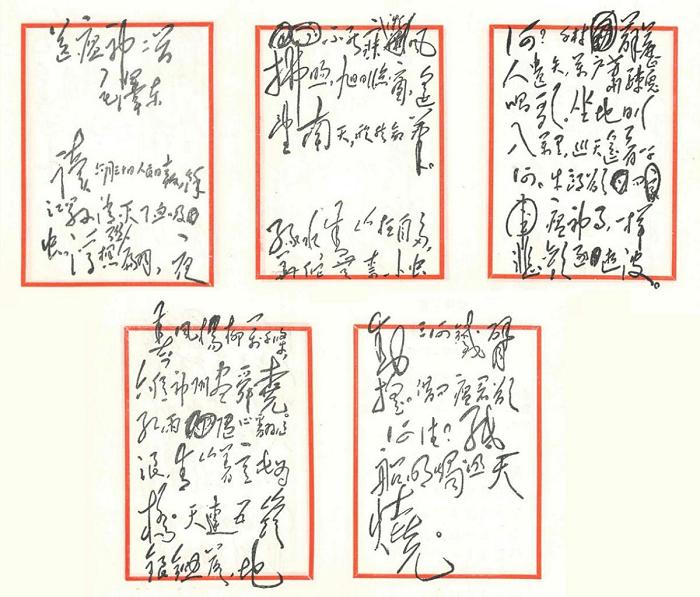 送瘟神二首
毛澤东
读六月三十日人民日報,余
江县消灭了血吸
虫。浮想联翩,一夜
不寐。微风
拂煦,旭日临窗,遥
望南天,欣然命笔。
绿水青山枉自多,
华佗无奈小虫
何?千村薜荔
人遗矢,万户萧疏鬼
唱歌。坐地日行
八万里,巡天遥看一千
河。牛郎欲问
瘟神事,一样
悲欢逐逝波。
春风楊柳万千條,
六億神州尽舜堯。
红雨随心翻作
浪,青山着意化为
橋。天連五岭
银锄落,地
动三河铁臂
摇。借问瘟君欲
何往?纸
船明烛照天
燒。